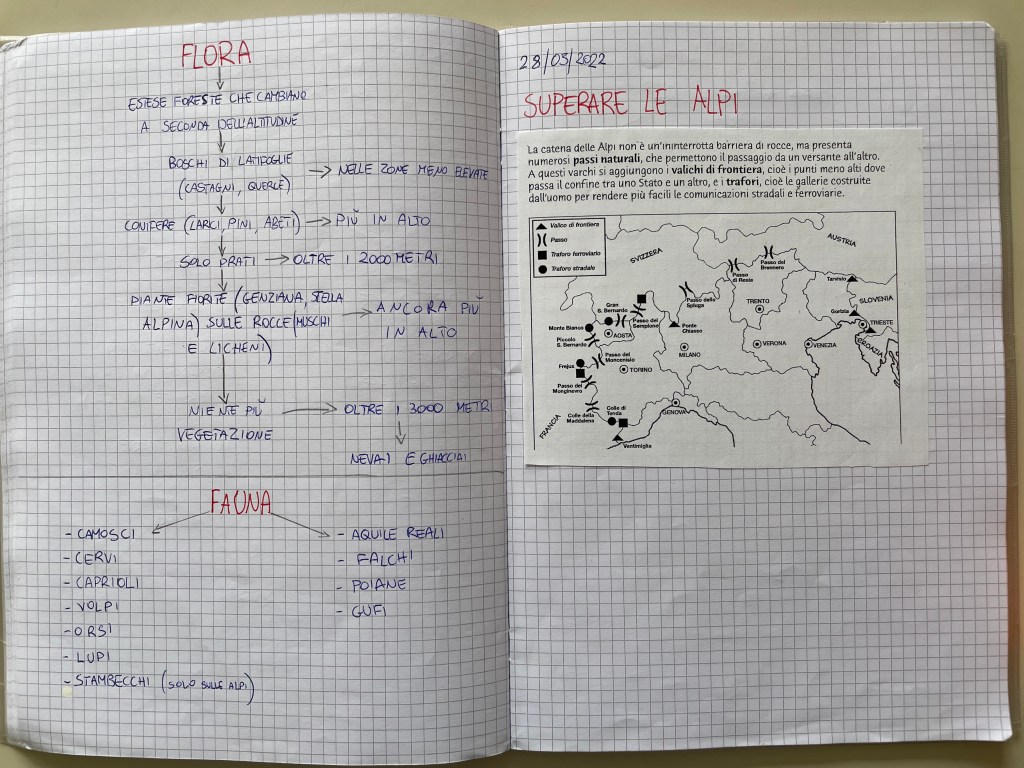 FLORA
ESTESE FORESTE CHE CAMBIANO
A SECONDA DELL'ALTITUDINE
BOSCHI DI LATIFOGLIE → NELLE ZONE MENO ELEVATE
(CASTAGNI, QUERCE)
CONIFERE (LARICI, PINI, ABETI) → PIÙ IN ALTO
SOLO PRATI → OLTRE I 2000 METRI
PIANTE FIORITE (GENZIANA, STELLA
ALPINA) SULLE ROCCE (MUSCHI
E LICHENI)
→ ANCORA PIÙ
IN ALTO
NIENTE PIÙ
VEGETAZIONE
→ OLTRE I 3000 METRI
NEVAI E GHIACCIAI
FAUNA
- CAMOSCI
- CERVI
- CAPRIOLI
- VOLPI
- ORSI
- LUPI
- STAMBECCHI (SOLO SULLE ALPI)
- AQUILE REALI
- FALCHI
- POIANE
- GUFI
28/03/2022
SUPERARE LE ALPI
La catena delle Alpi non è un'ininterrotta barriera di rocce, ma presenta
numerosi passi naturali, che permettono il passaggio da un versante all'altro.
A questi varchi si aggiungono i valichi di frontiera, cioè i punti meno alti dove
passa il confine tra uno Stato e un altro, e i trafori, cioè le gallerie costruite
dall'uomo per rendere più facili le comunicazioni stradali e ferroviarie.
Valico di frontiera
Passo
Traforo ferroviario
Traforo stradale
SVIZZERA
AUSTRIA
Passo del
Brennero
Passo
di Resia
Tarvisio
SLOVENIA
Passo dello
Spluga
TRENTO
Gorizia
TRIESTE
CROAZIA
Gran
S. Bernardo
Passo del
Sempione
Monte Bianco
AOSTA
Ponte
Chiasso
Piccolo
S. Bernardo
MILANO
VERONA
VENEZIA
Frejus
Passo del
Moncenisio
TORINO
Passo del
Monginevro
FRANCIA
Colle della
Maddalena
Colle di
Tenda
GENOVA
Ventimiglia